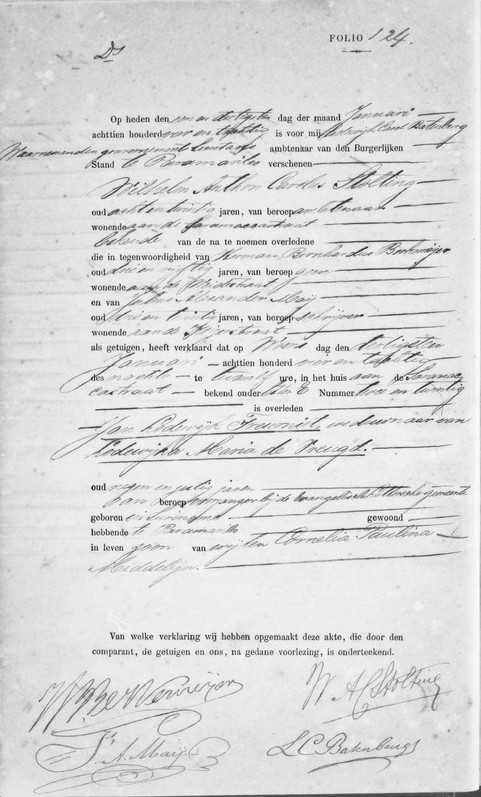 FOLIO 124.
Ds
Op heden den een en dertigsten dag der maand Januari
achttien honderd vier en tachtig is voor mij Lodewijk Carel Batenburg
Waarnemenden gouvernements Secretaris ambtenaar van den Burgerlijken
Stand te Paramaribo verschenen
Wilhelm Anthon Carolus Stolting
oud acht en twintig jaren, van beroep ambtenaar
wonende aan de Saramaccastraat
bekende van de na te noemen overledene
die in tegenwoordigheid van Herman Bernhardus
oud drie en vijftig jaren, van beroep geen
wonende aan de
en van
oud drie en twintig jaren, van beroep schrijver
wonende aan de
als getuigen, heeft verklaard dat op Woensdag den dertigsten
Januari achttien honderd vier en tachtig
des nachts te twaalf ure, in het huis aan de Saramac-
castraat bekend onder Nummer twee en twintig
is overleden
Jan Lodewijk weduwnaar van
Lodewijka Maria de Vreugd.
oud negen en zestig jaren
van beroep voorzanger bij de evangelisch Luthersche gemeente
geboren in Suriname gewoond
hebbende te Paramaribo
in leven zoon van wijlen Cornelia Paulina
Middelijn.
Van welke verklaring wij hebben opgemaakt deze akte, die door den
comparant, de getuigen en ons, na gedane voorlezing, is onderteekend.
W A C Stolting
J. A. Maij
L C Batenburg